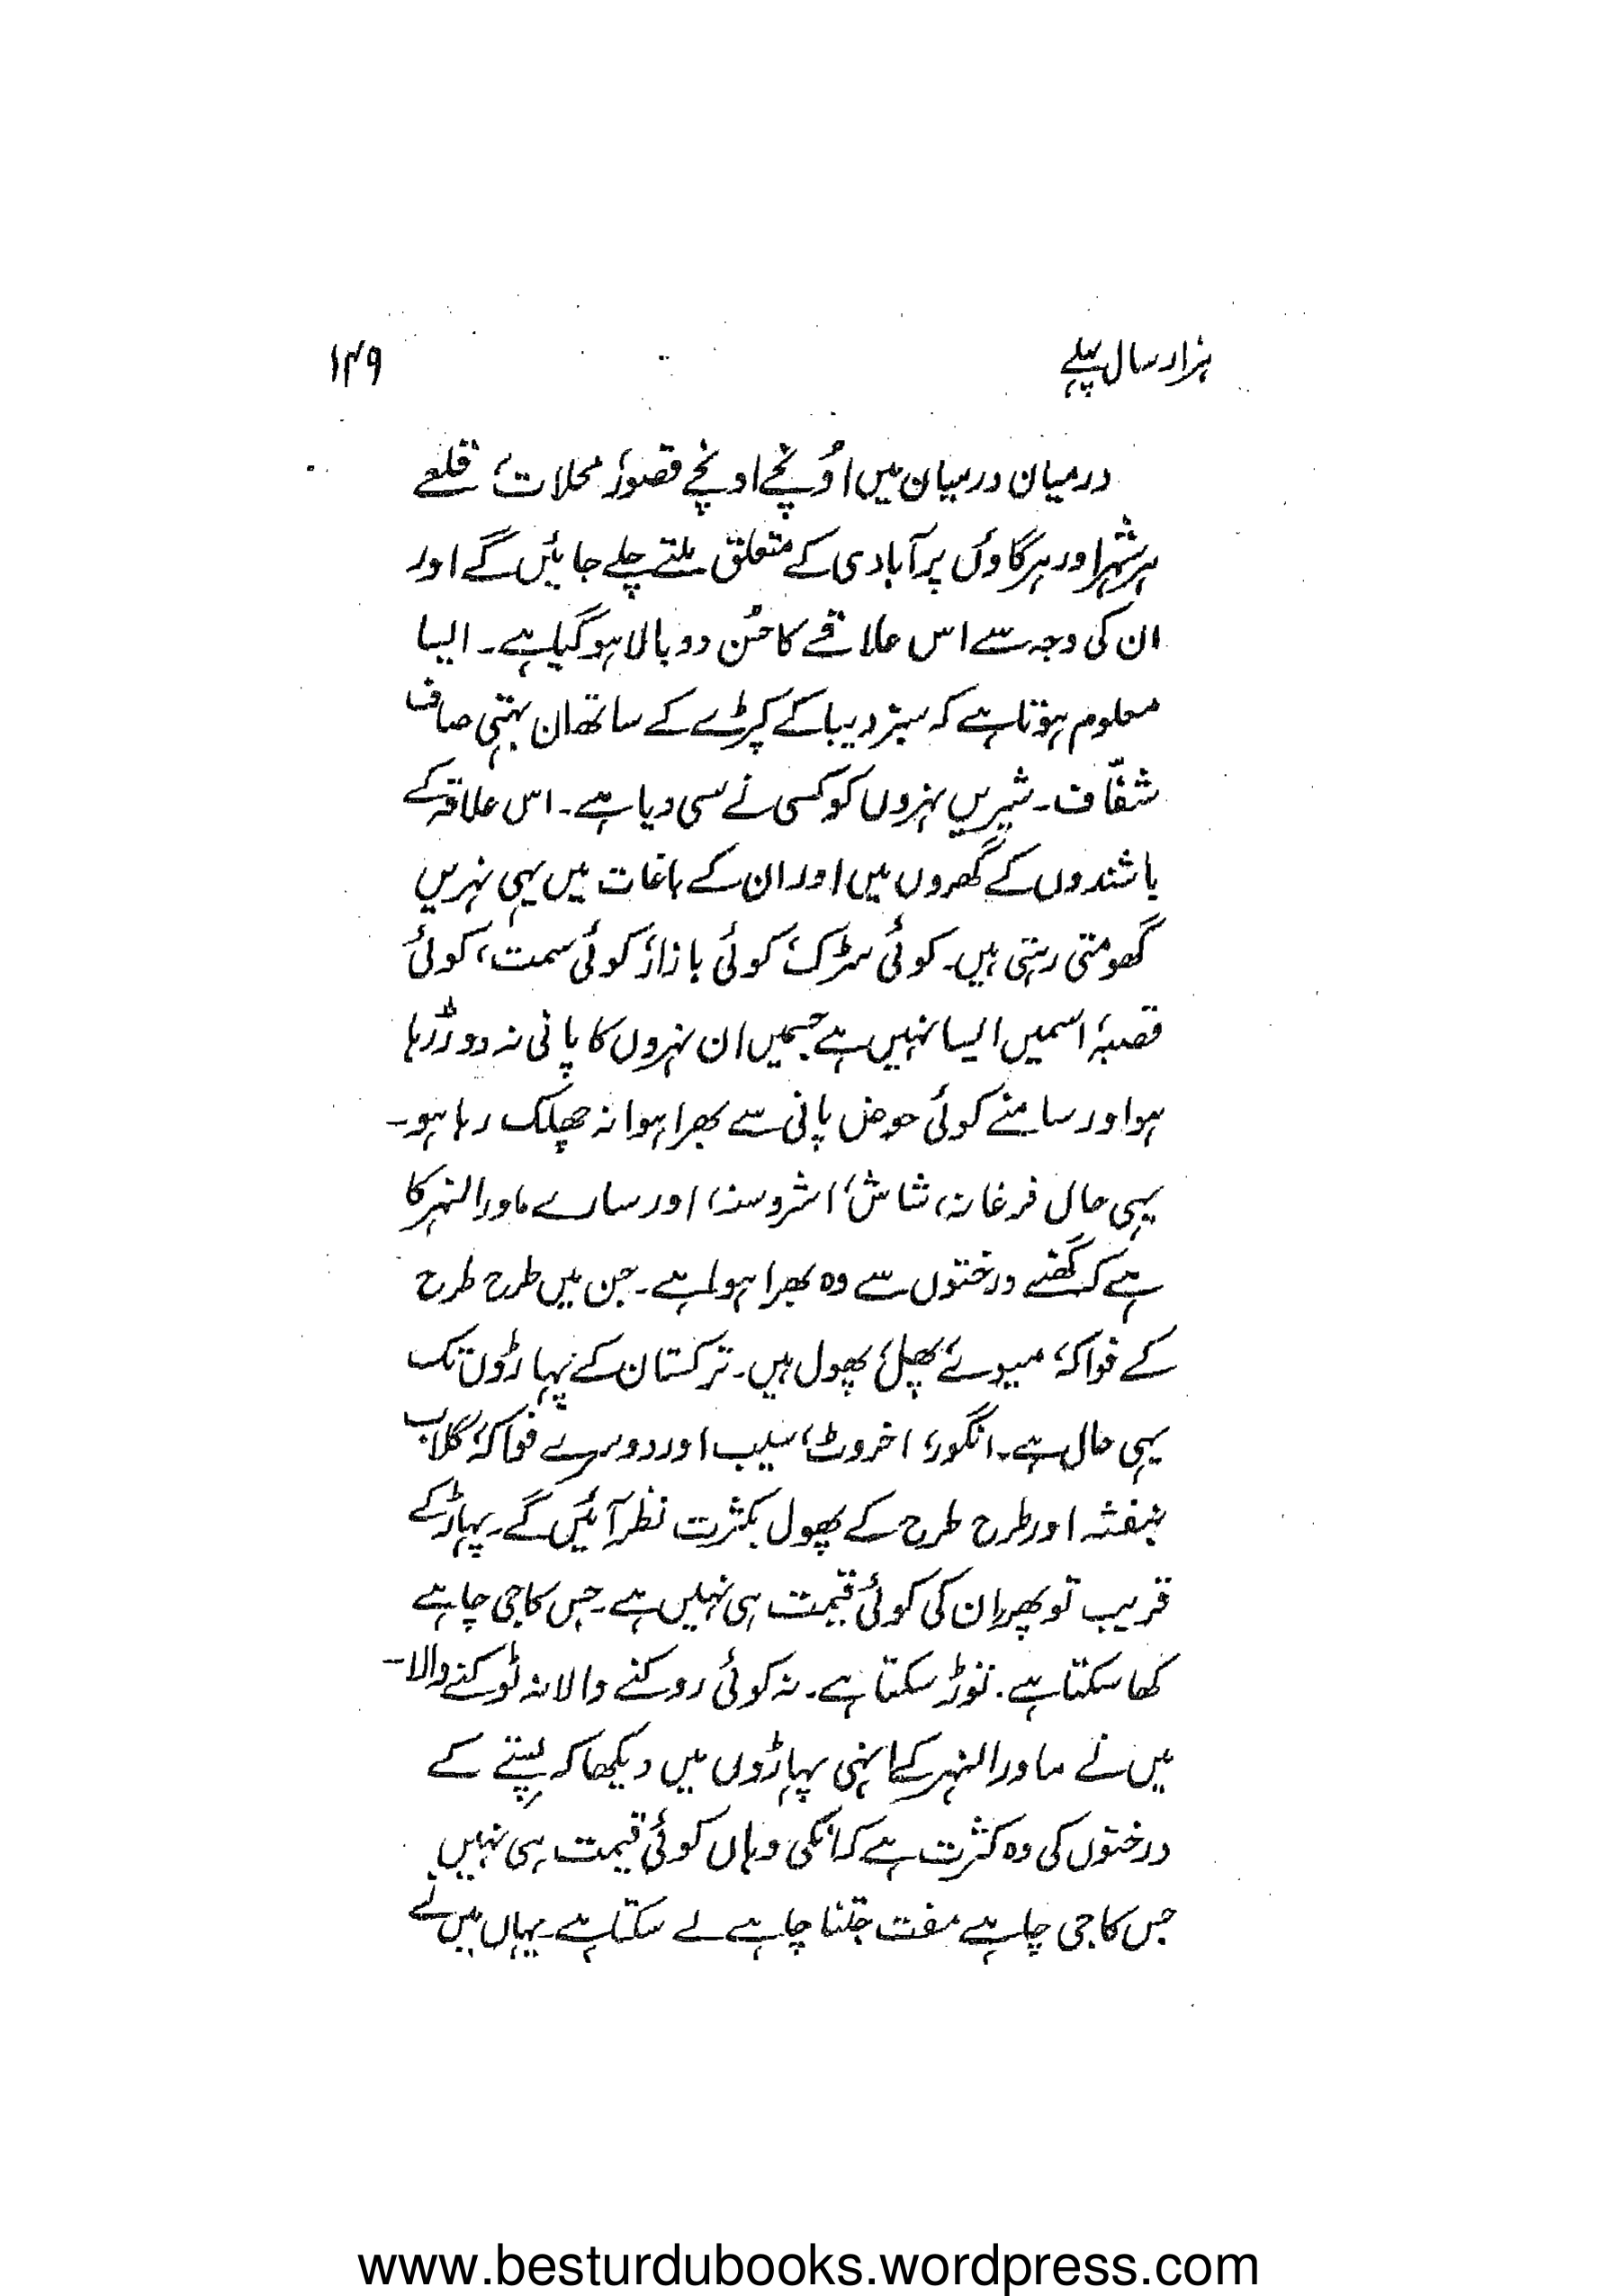 ہزار سال پہلے
۱۴۹
درمیان درمیان میں اُونچے اونچے قصور، محلات، قلعے
ہر شہر اور ہر گاؤں پر آبادی کے متعلق ملتے چلے جائیں گے اور
ان کی وجہ سے اس علاقے کا حُسن دوبالا ہوگیا ہے۔ ایسا
معلوم ہوتا ہے کہ سبز دیبا کے کپڑے کے ساتھ ان بہتی صاف
شفّاف۔ شیریں نہروں کو کسی نے سی دیا ہے۔ اس علاقہ کے
باشندوں کے گھروں میں اور ان کے باغات میں یہی نہریں
گھومتی رہتی ہیں۔ کوئی سڑک، کوئی بازار، کوئی سمت، کوئی
قصبہ، اسمیں ایسا نہیں ہے جسمیں ان نہروں کا پانی نہ دوڑ رہا
ہو اور سامنے کوئی حوض پانی سے بھرا ہوا نہ چھلک رہا ہو۔
یہی حال فرغانہ، شاش، اشروسنہ، اور سارے ماورالنہر کا
ہے کہ گھنے درختوں سے وہ بھرا ہوا ہے۔ جن میں طرح طرح
کے فواکہ، میوے، پھل، پھول ہیں۔ ترکستان کے پہاڑوں تک
یہی حال ہے۔ انگور، اخروٹ، سیب اور دوسرے فواکہ، گلاب
بنفشہ اور طرح طرح کے پھول بکثرت نظر آئیں گے۔ پہاڑ کے
قریب تو پھر اِن کی کوئی قیمت ہی نہیں ہے۔ جس کا جی چاہے
کھا سکتا ہے۔ توڑ سکتا ہے۔ نہ کوئی روکنے والا نہ ٹوکنے والا۔
میں نے ماورالنہر کے انہی پہاڑوں میں دیکھا کہ پِستے کے
درختوں کی وہ کثرت ہے کہ انکی وہاں کوئی قیمت ہی نہیں
جس کا جی چاہے مفت جتنا چاہے لے سکتا ہے۔ یہاں میں نے
www.besturdubooks.wordpress.com